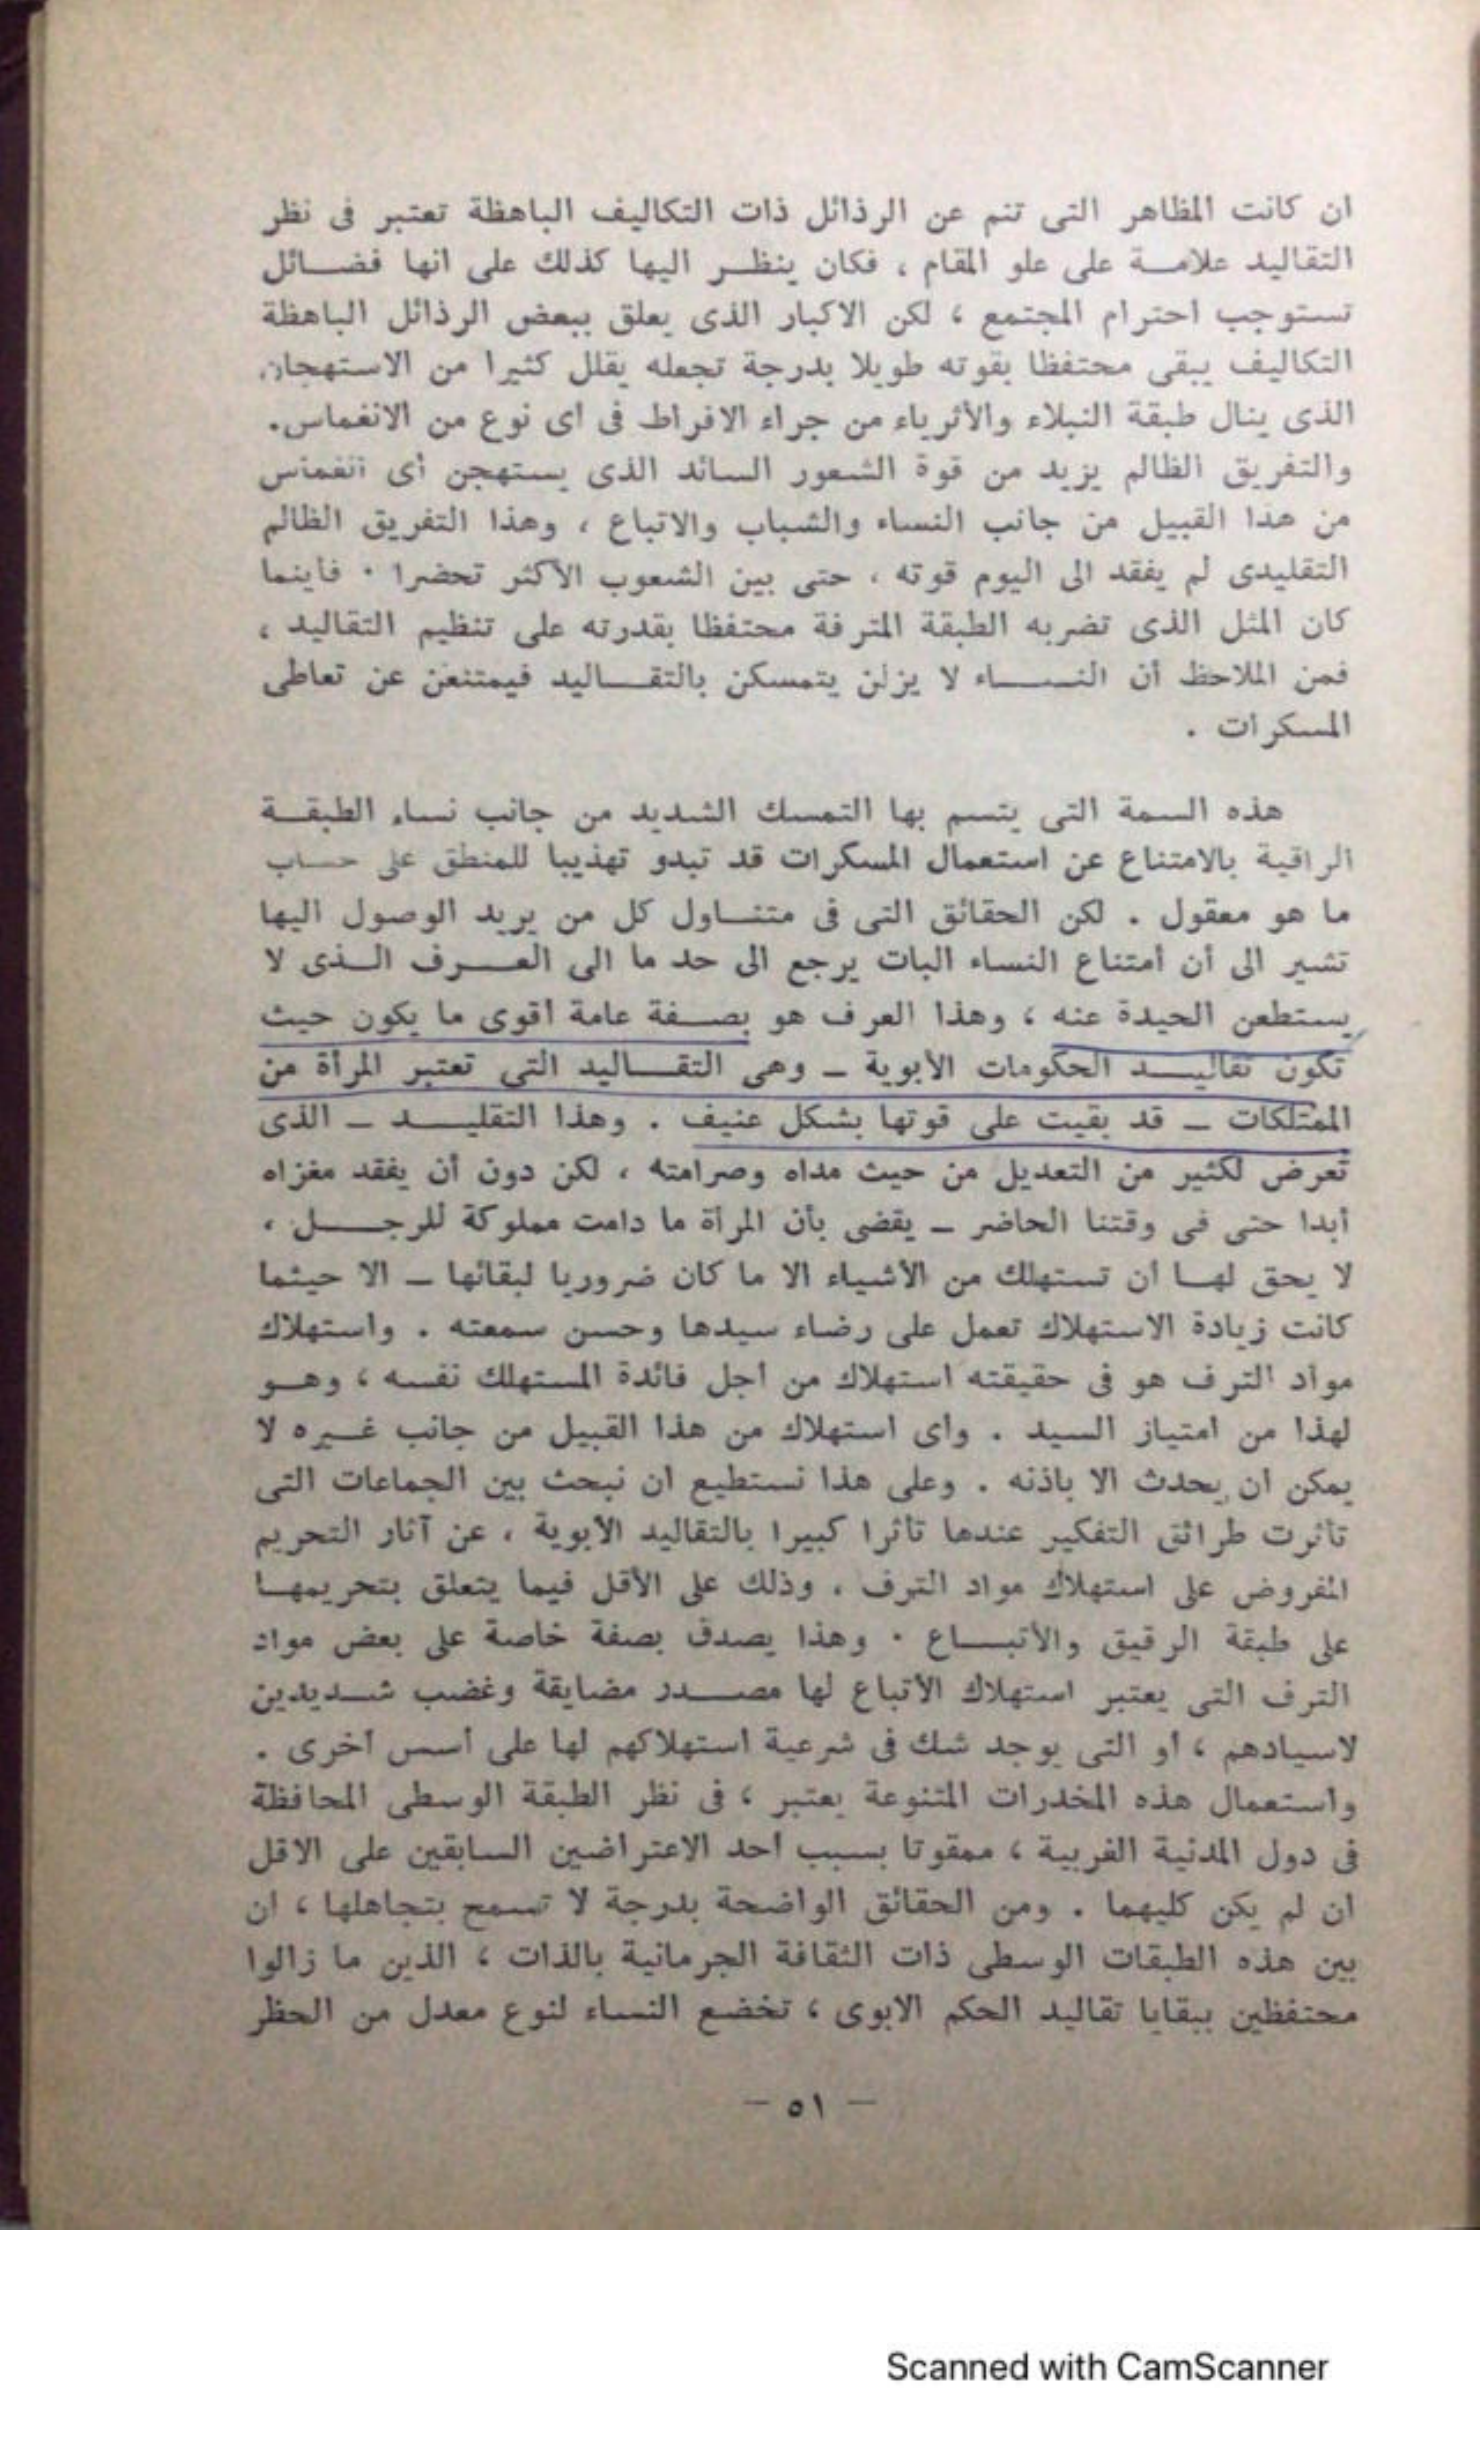 ان كانت المظاهر التى تنم عن الرذائل ذات التكاليف الباهظة تعتبر فى نظر
التقاليد علامة على علو المقام ، فكان ينظر اليها كذلك على انها فضائل
تستوجب احترام المجتمع ، لكن الاكبار الذى يعلق ببعض الرذائل الباهظة
التكاليف يبقى محتفظا بقوته طويلا بدرجة تجعله يقلل كثيرا من الاستهجان
الذى ينال طبقة النبلاء والأثرياء من جراء الافراط فى اى نوع من الانغماس.
والتفريق الظالم يزيد من قوة الشعور السائد الذى يستهجن أى انغماس
من هذا القبيل من جانب النساء والشباب والاتباع ، وهذا التفريق الظالم
التقليدى لم يفقد الى اليوم قوته ، حتى بين الشعوب الأكثر تحضرا . فأينما
كان المثل الذى تضربه الطبقة المترفة محتفظا بقدرته على تنظيم التقاليد ،
فمن الملاحظ أن النساء لا يزلن يتمسكن بالتقاليد فيمتنعن عن تعاطى
المسكرات .
هذه السمة التى يتسم بها التمسك الشديد من جانب نساء الطبقة
الراقية بالامتناع عن استعمال المسكرات قد تبدو تهذيبا للمنطق على حساب
ما هو معقول . لكن الحقائق التى فى متناول كل من يريد الوصول اليها
تشير الى أن أمتناع النساء البات يرجع الى حد ما الى العرف الذى لا
يستطعن الحيدة عنه ، وهذا العرف هو بصفة عامة أقوى ما يكون حيث
تكون تقاليد الحكومات الأبوية – وهى التقاليد التى تعتبر المرأة من
الممتلكات – قد بقيت على قوتها بشكل عنيف . وهذا التقليد – الذى
تعرض لكثير من التعديل من حيث مداه وصرامته ، لكن دون أن يفقد مغزاه
أبدا حتى فى وقتنا الحاضر – يقضى بأن المرأة ما دامت مملوكة للرجل ،
لا يحق لها ان تستهلك من الأشياء الا ما كان ضروريا لبقائها – الا حيثما
كانت زيادة الاستهلاك تعمل على رضاء سيدها وحسن سمعته . واستهلاك
مواد الترف هو فى حقيقته استهلاك من اجل فائدة المستهلك نفسه ، وهو
لهذا من امتياز السيد . واى استهلاك من هذا القبيل من جانب غيره لا
يمكن ان يحدث الا باذنه . وعلى هذا نستطيع ان نبحث بين الجماعات التى
تأثرت طرائق التفكير عندها تأثرا كبيرا بالتقاليد الأبوية ، عن آثار التحريم
المفروض على استهلاك مواد الترف ، وذلك على الأقل فيما يتعلق بتحريمها
على طبقة الرقيق والأتباع . وهذا يصدق بصفة خاصة على بعض مواد
الترف التى يعتبر استهلاك الأتباع لها مصدر مضايقة وغضب شديدين
لاسيادهم ، او التى يوجد شك فى شرعية استهلاكهم لها على أسس أخرى .
واستعمال هذه المخدرات المتنوعة يعتبر ، فى نظر الطبقة الوسطى المحافظة
فى دول المدنية الغربية ، ممقوتا بسبب أحد الاعتراضين السابقين على الاقل
ان لم يكن كليهما . ومن الحقائق الواضحة بدرجة لا تسمح بتجاهلها ، ان
بين هذه الطبقات الوسطى ذات الثقافة الجرمانية بالذات ، الذين ما زالوا
محتفظين ببقايا تقاليد الحكم الابوى ، تخضع النساء لنوع معدل من الحظر
– ٥١ –
Scanned with CamScanner